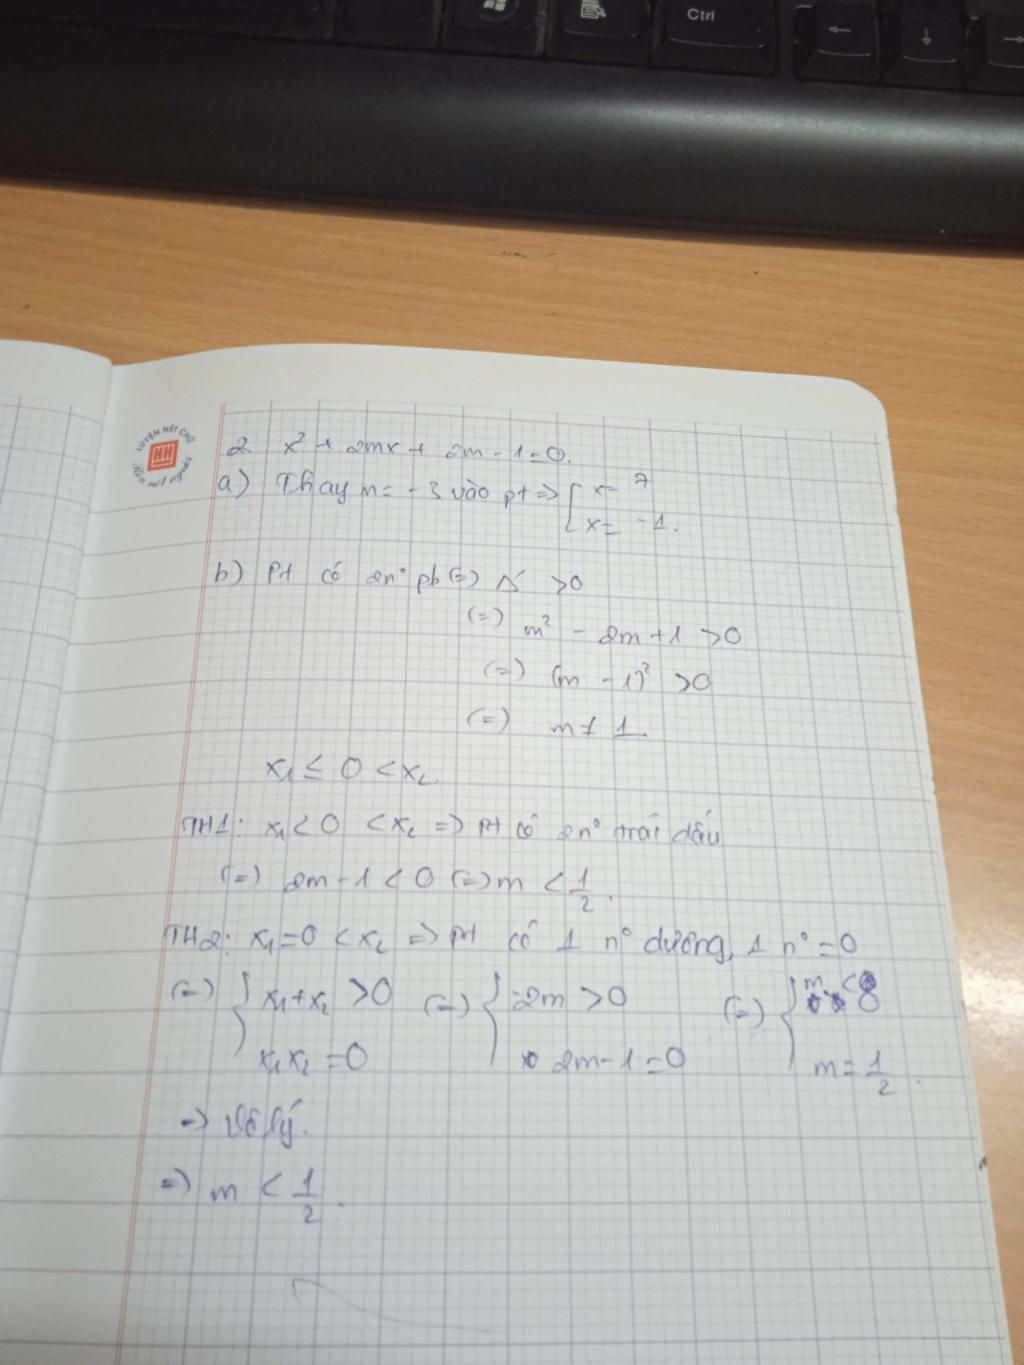 Ctrl
LUYỆN NÉT CHỮ
HH
Rèn nết người
2. x² + 2mx + 2m - 1 = 0.
a) Thay m = -3 vào pt => [ x = 7
x = -1.
b) Pt có 2n° pb (=) Δ' > 0
(=) m² - 2m + 1 > 0
(=) (m - 1)² > 0
(=) m ≠ 1
x₁ ≤ 0 < x₂.
TH1: x₁ < 0 < x₂ => pt có 2n° trái dấu
(=) 2m - 1 < 0 (=) m < 1/2.
TH2: x₁ = 0 < x₂ => pt có 1 n° dương, 1 n° = 0
(=) { x₁ + x₂ > 0 (=) { -2m > 0 (=) { m < 0
x₁x₂ = 0 2m - 1 = 0 m = 1/2.
=> Vô lý.
=> m < 1/2.